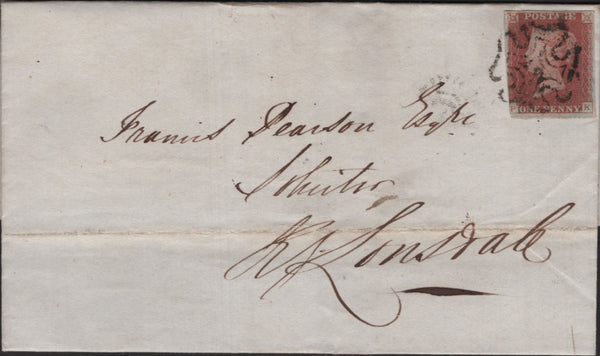 POSTAGE
ONE PENNY
Francis Pearson Esqre
Solicitor
Lonsdale